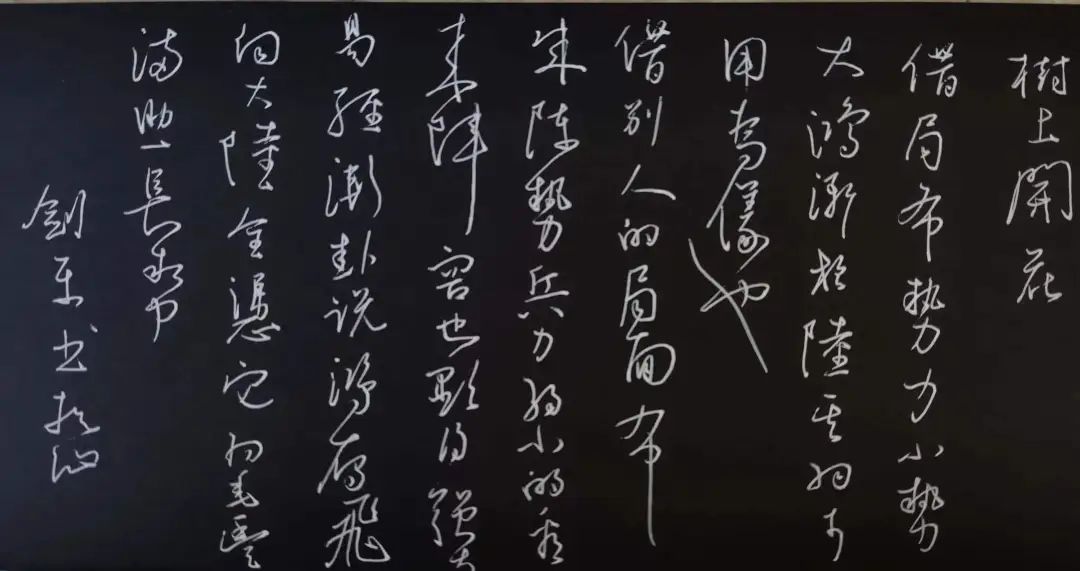 樹上開花
借局布勢力小勢
大鴻漸於陸其羽可
用為儀也
借別人的局面布
成陣勢兵力弱小的看
來陣容也顯得強大
易經漸卦说鴻雁飛
向大陸全憑它的毛豐
滿助長氣力
劍東书於沁